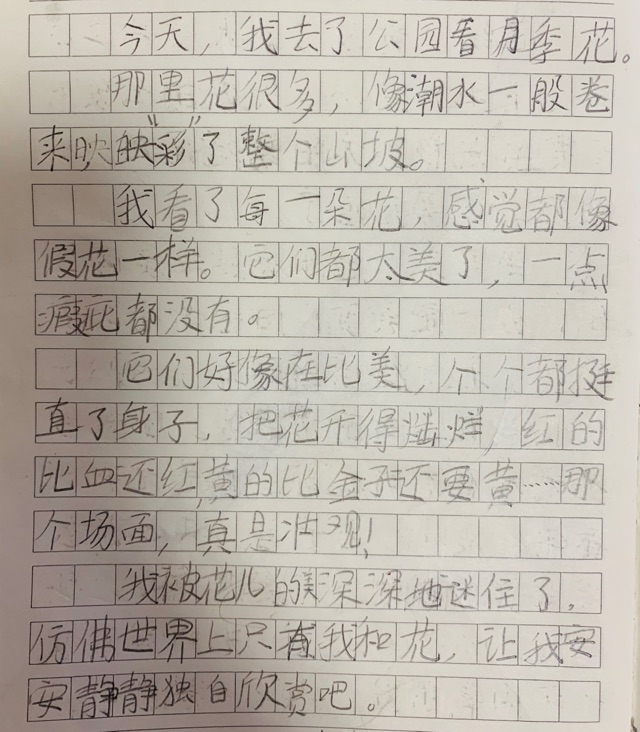 今天，我去了公园看月季花。
那里花很多，像潮水一般卷
来映映“彩”了整个山坡。
我看了每一朵花，感觉都像
假花一样。它们都太美了，一点
瑕疵都没有。
它们好像在比美，个个都挺
直了身子，把花开得灿烂，红的
比血还红，黄的比金子还要黄……那
个场面，真是壮观！
我被花儿的美深深地迷住了，
仿佛世界上只有我和花，让我安
安静静独自欣赏吧。